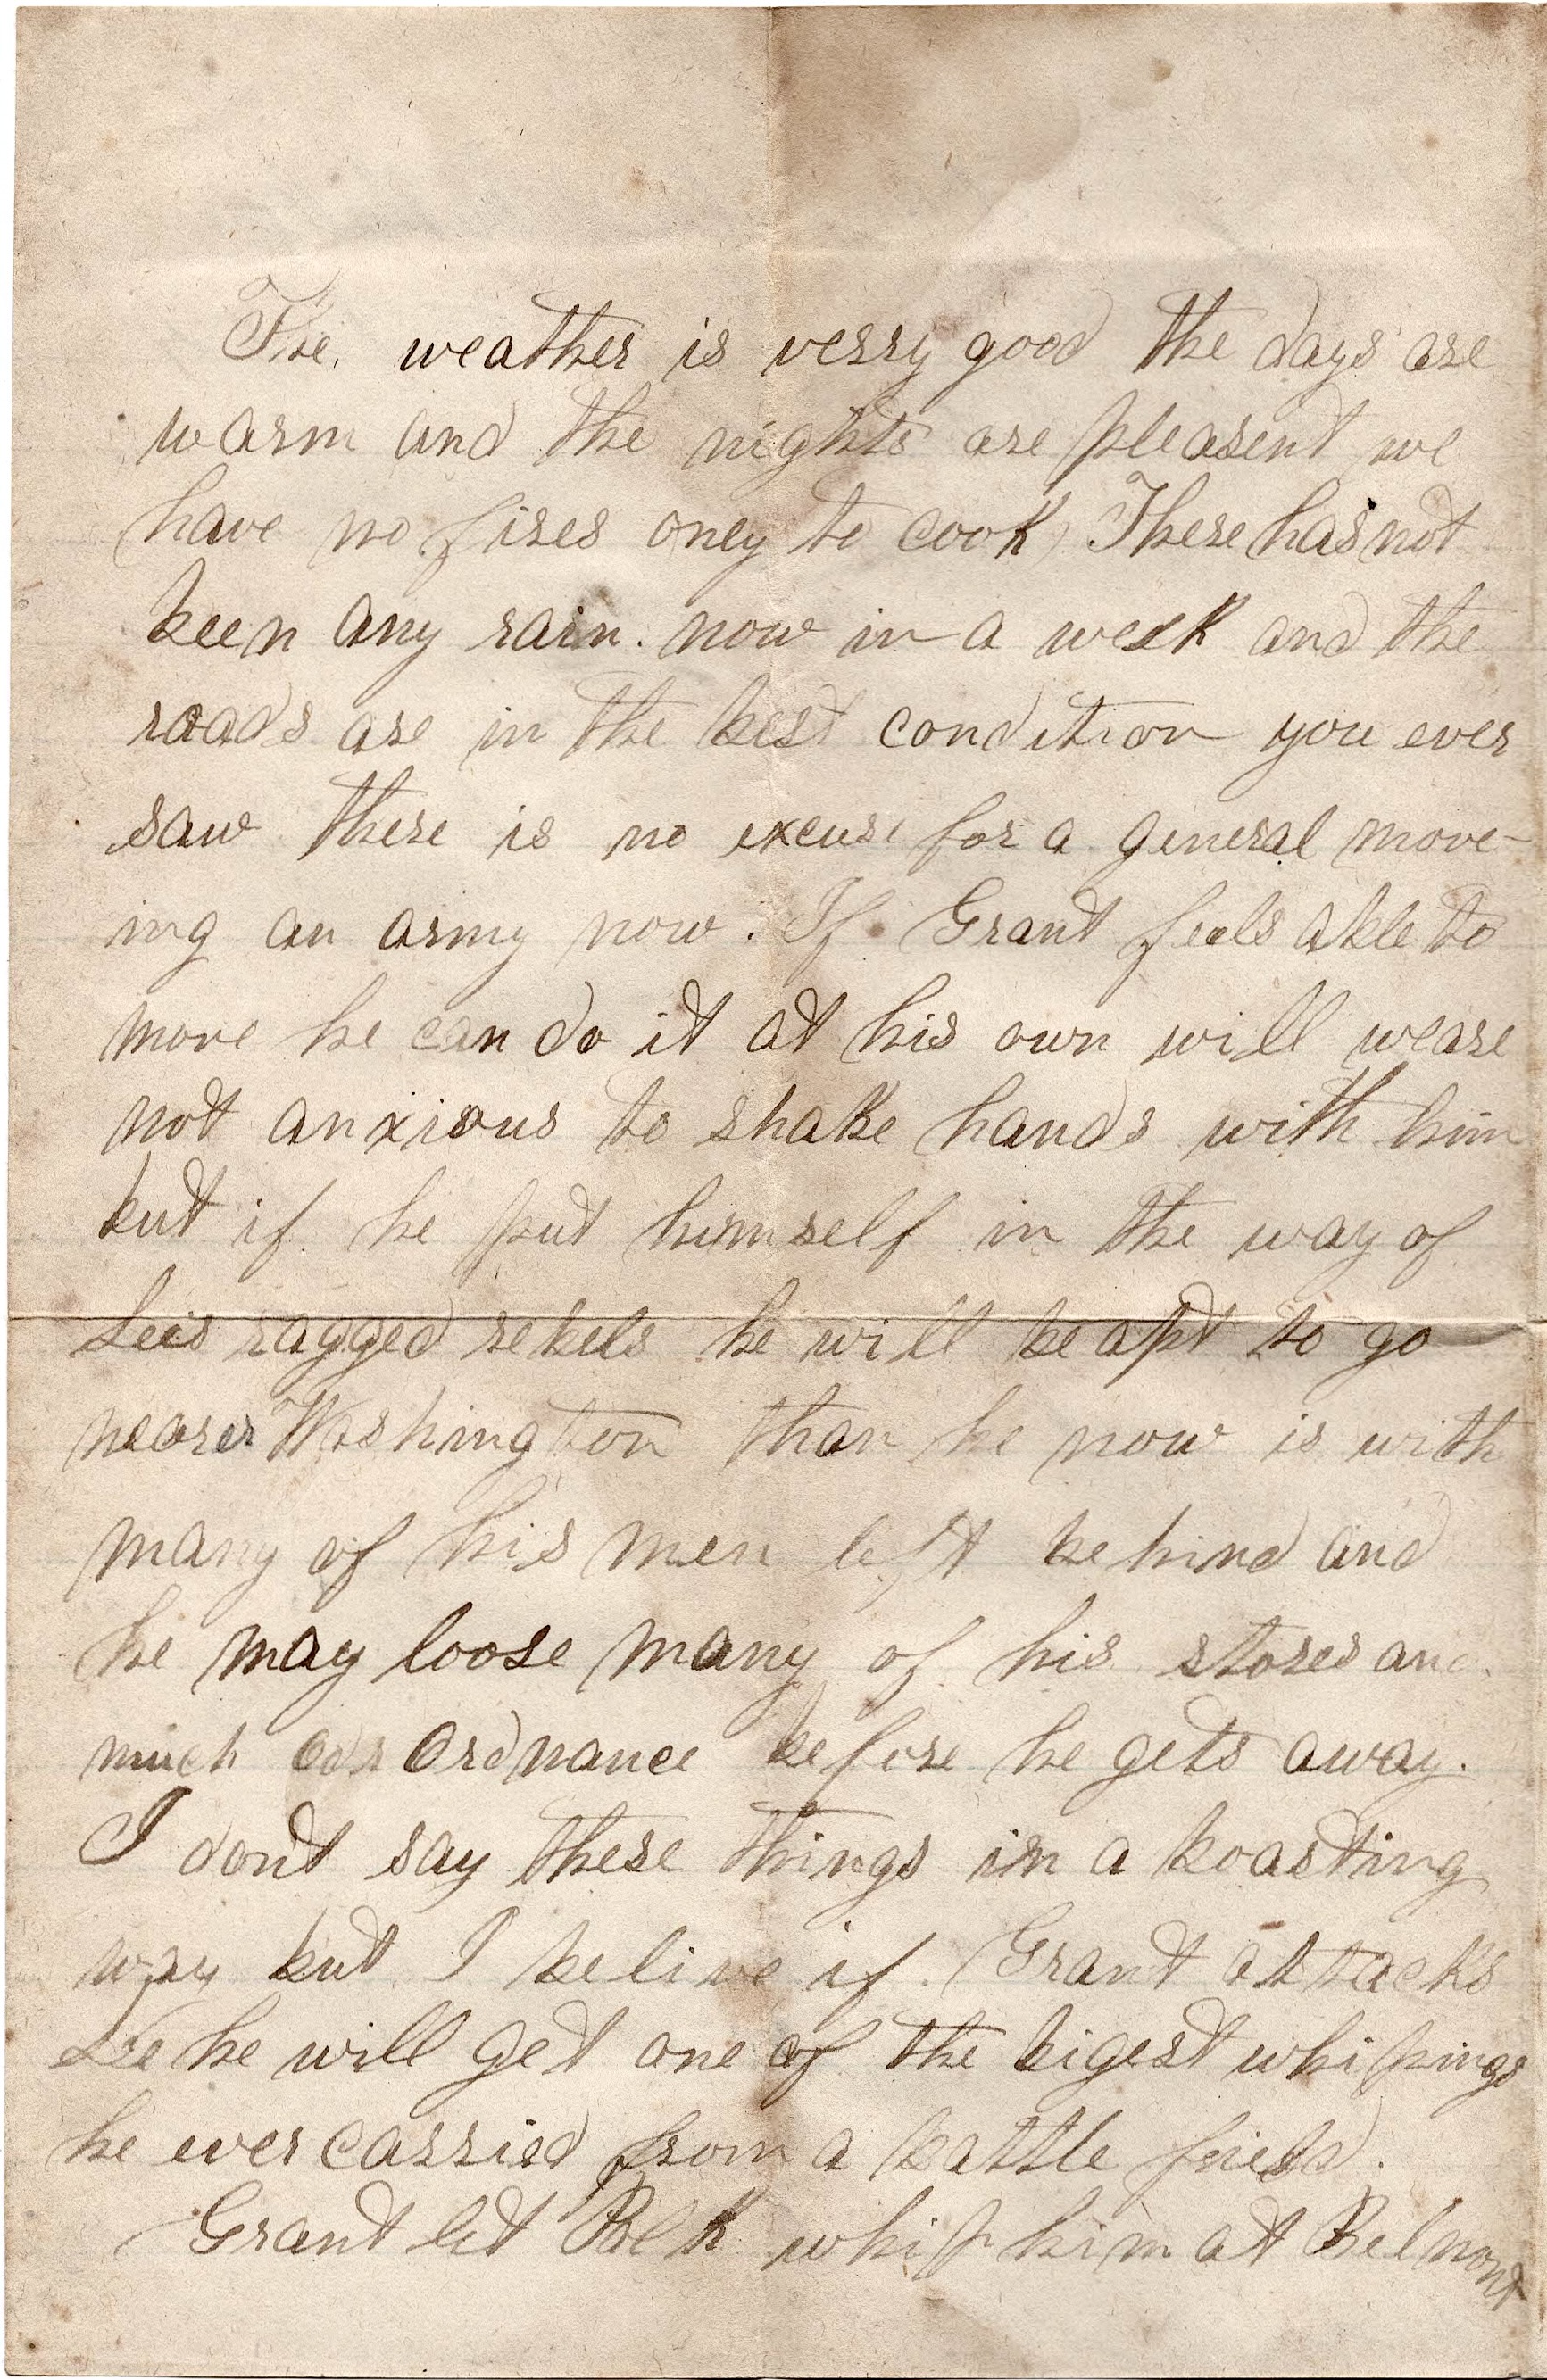 The weather is verry good the days are
warm and the nights are pleasent we
have no fires oney to cook There has not
been any rain. now in a week and the
roads are in the best condition you ever
saw there is no excuse for a general move-
ing an army now. If Grant feels able to
move he can do it at his own will we are
not anxious to shake hands with him
but if he put himself in the way of
Lees ragged rebels he will be apt to go
nearer Washington than he now is with
many of his men left behind and
he may loose many of his stores and
much Ordnance before he gets away.
I dont say these things in a boasting
way but I belive if Grant attacks
Lee he will get one of the bigest whipings
he ever carried from a battle field.
Grant let Polk whip him at Belmont